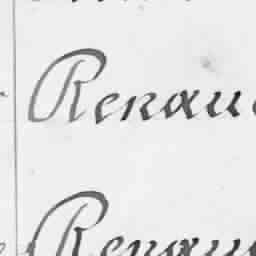 Renau
Renau